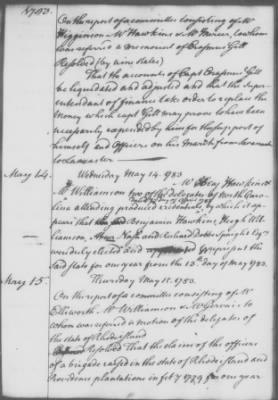 May 1783.
On the report of a committee consisting of Mr
Higginson Mr Hawkins & Mr Mercer, to whom
was referred a memorial of Erasmus Gill
Resolved (by nine states)
That the accounts of Capt Erasmus Gill
be liquidated and adjusted and that the Super-
intendant of finance take order to replace the
Money which capt Gill may prove to have been
necessarily expended by him for the support of
himself and Officers on his March from Savannah
to Lancaster
May 14.
Wednesday May 14. 1783
Mr Benj Hawkins &
Mr Williamson two of the delegates for North Caro-
lina attending produced credentials by which it ap-
pears that Benjamin Hawkins, Hugh Wil-
liamson, Abner Nash and Richard Dobbs Spaight Esqrs
were duly elected and to represent the
said state for one year from the 13th day of May 1783.
May 15.
Thursday May 15. 1783.
On the report of a committee consisting of Mr
Ellsworth, Mr Williamson & Mr Gervais to
whom was referred a motion of the delegates of
the state of Rhode island
Resolved That the claim of the officers
of a brigade raised in the state of Rhode Island and
Providence plantations in feby 1779 for one year